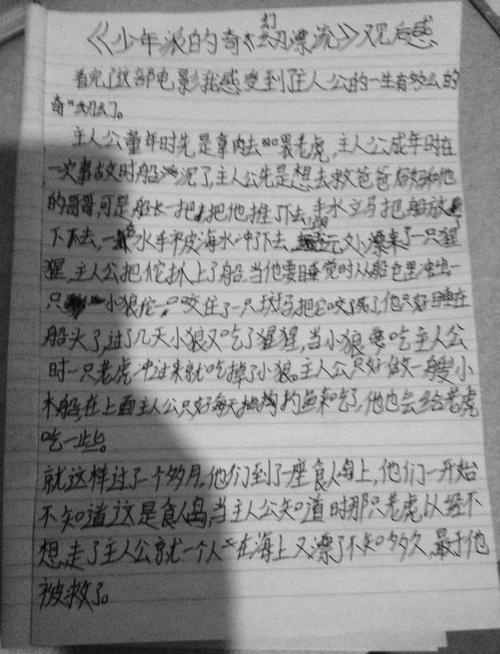 《少年派的奇幻漂流》观后感
看完了这部电影我感受到了主人公的一生有多么的
奇幻了。
主人公童年时先是拿肉去喂老虎,主人公成年时在
一次事故时船沉了,主人公先是想去救爸爸妈妈和他
的哥哥,可是船长一把把他推下去,水立马把船放
下下去,一水手被海水冲了下去,又漂来了一只猩
猩,主人公把佗抓上了船,当他要睡觉时从船仓里冲出一
只小狼佗一口咬住了一只斑马把它咬了,他只好睡在
船头了,过了几天小狼又吃了猩猩,当小狼要吃主人公
时一只老虎冲过来就吃掉了小狼。主人公只好做一艘小
木船,在上面主人公只好每天钓鱼来吃了,他也会给老虎
吃一些。
就这样过了一个多月,他们到了一座食人岛上,他们一开始
不知道这是食人岛,当主人公知道时那只老虎以经不
想走了主人公就一个人在海上又漂了不知多久,最于他
被救了。